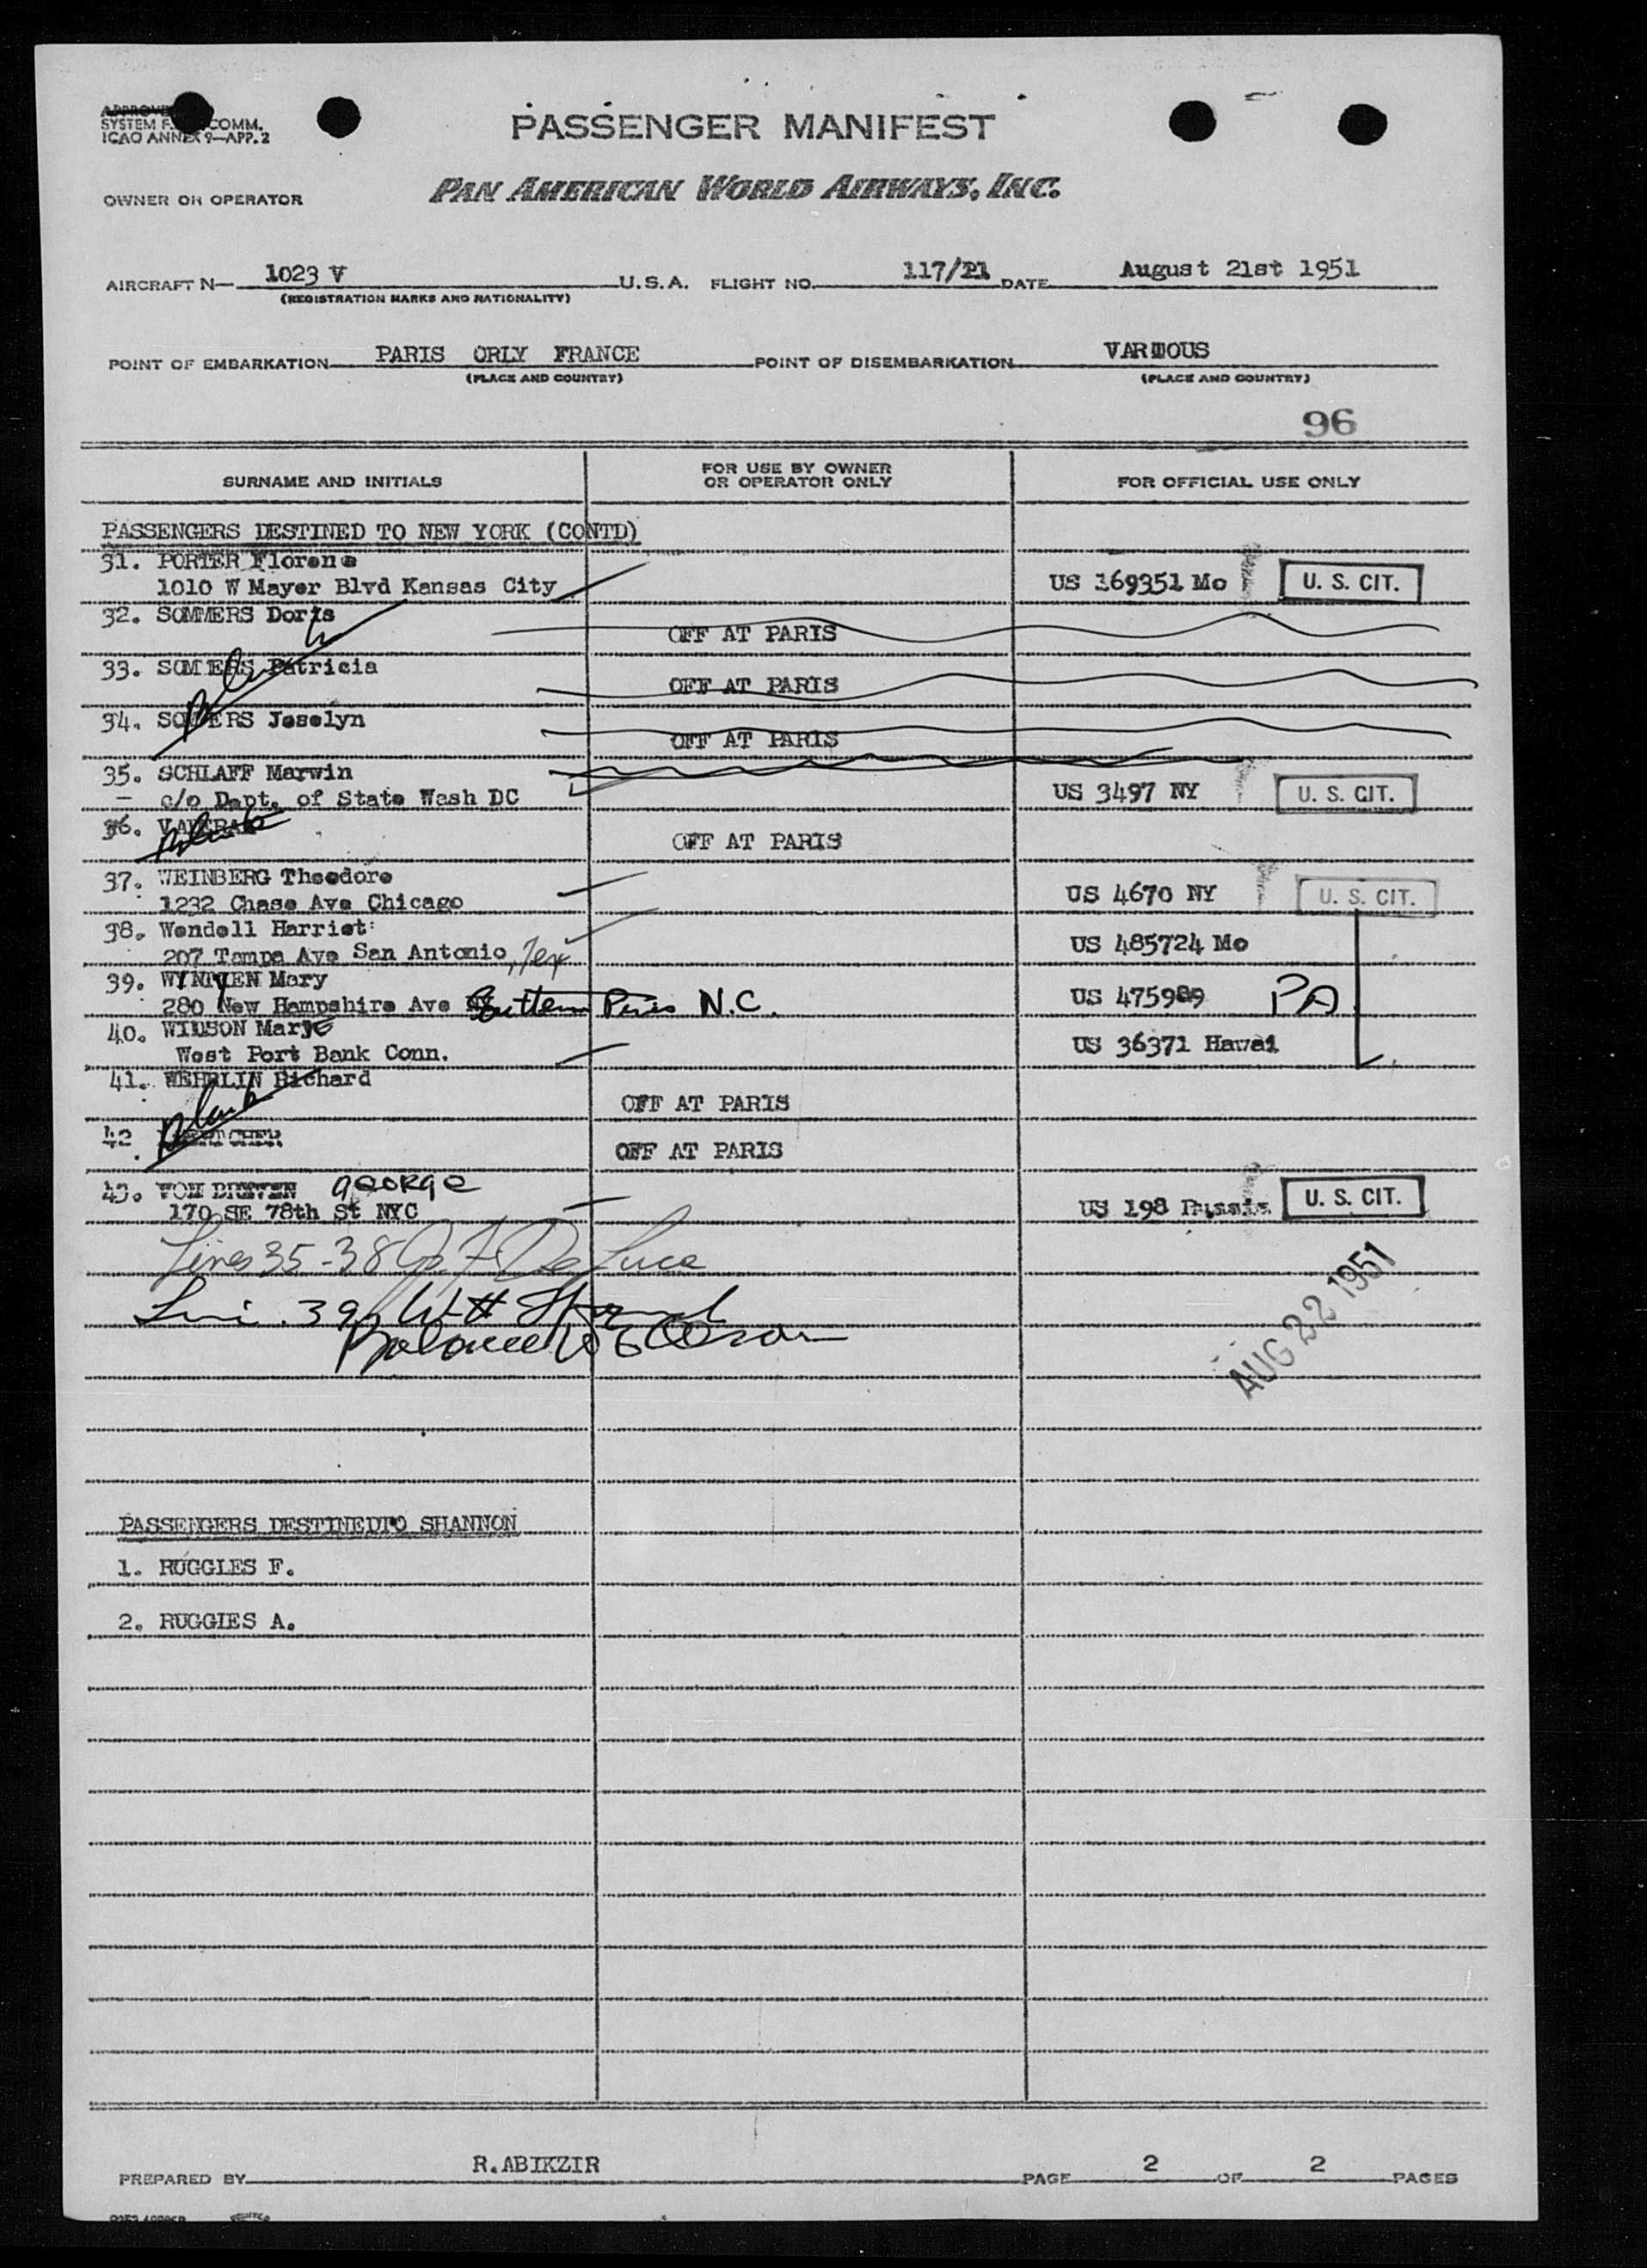 SYSTEM F. COMM.
ICAO ANNEX 9—APP. 2
PASSENGER MANIFEST
OWNER OR OPERATOR PAN AMERICAN WORLD AIRWAYS, INC.
AIRCRAFT N— 1023 V U.S.A. FLIGHT NO. 117/21 DATE August 21st 1951
(REGISTRATION MARKS AND NATIONALITY)
POINT OF EMBARKATION PARIS ORLY FRANCE POINT OF DISEMBARKATION VARIOUS
(PLACE AND COUNTRY) (PLACE AND COUNTRY)
96
SURNAME AND INITIALS
FOR USE BY OWNER
OR OPERATOR ONLY
FOR OFFICIAL USE ONLY
PASSENGERS DESTINED TO NEW YORK (CONTD)
31. PORTER Florene
1010 W Mayer Blvd Kansas City US 169351 Mo U. S. CIT.
32. SOMMERS Doris
OFF AT PARIS
33. SOMMERS Patricia
OFF AT PARIS
34. SOMMERS Joselyn
OFF AT PARIS
35. SCHLAFF Marwin
c/o Dept. of State Wash DC US 3497 NY U. S. CIT.
36.
OFF AT PARIS
37. WEINBERG Theodore
1232 Chase Ave Chicago US 4670 NY U. S. CIT.
38. Wendell Harriet
207 Tampa Ave San Antonio, Tex US 485724 Mo
39. Mary
280 New Hampshire Ave Southern Pines N.C. US 475989 PA
40. WILSON Marye
West Port Bank Conn. US 36371 Hawai
41. WEHRLIN Richard
blank OFF AT PARIS
42. OFF AT PARIS
43. VOM George
170 SE 78th St NYC US 198 U. S. CIT.
Lines 35-38 Jo. F. De Luca
Line. 39
Balance
AUG 22 1951
PASSENGERS DESTINEDTO SHANNON
1. RUGGLES F.
2. RUGGIES A.
PREPARED BY R.ABIKZIR PAGE 2 OF 2 PAGES